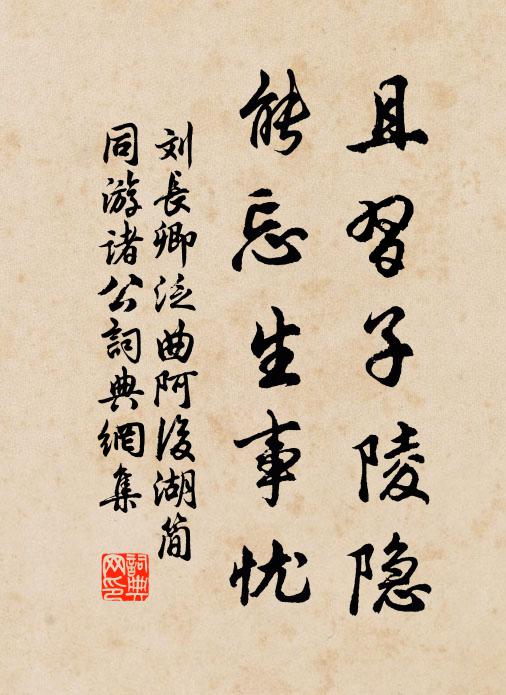 且習子陵隐
能忘生事忧
刘長卿泛曲阿後湖简
同游诸公詞典網集
詞典
网印